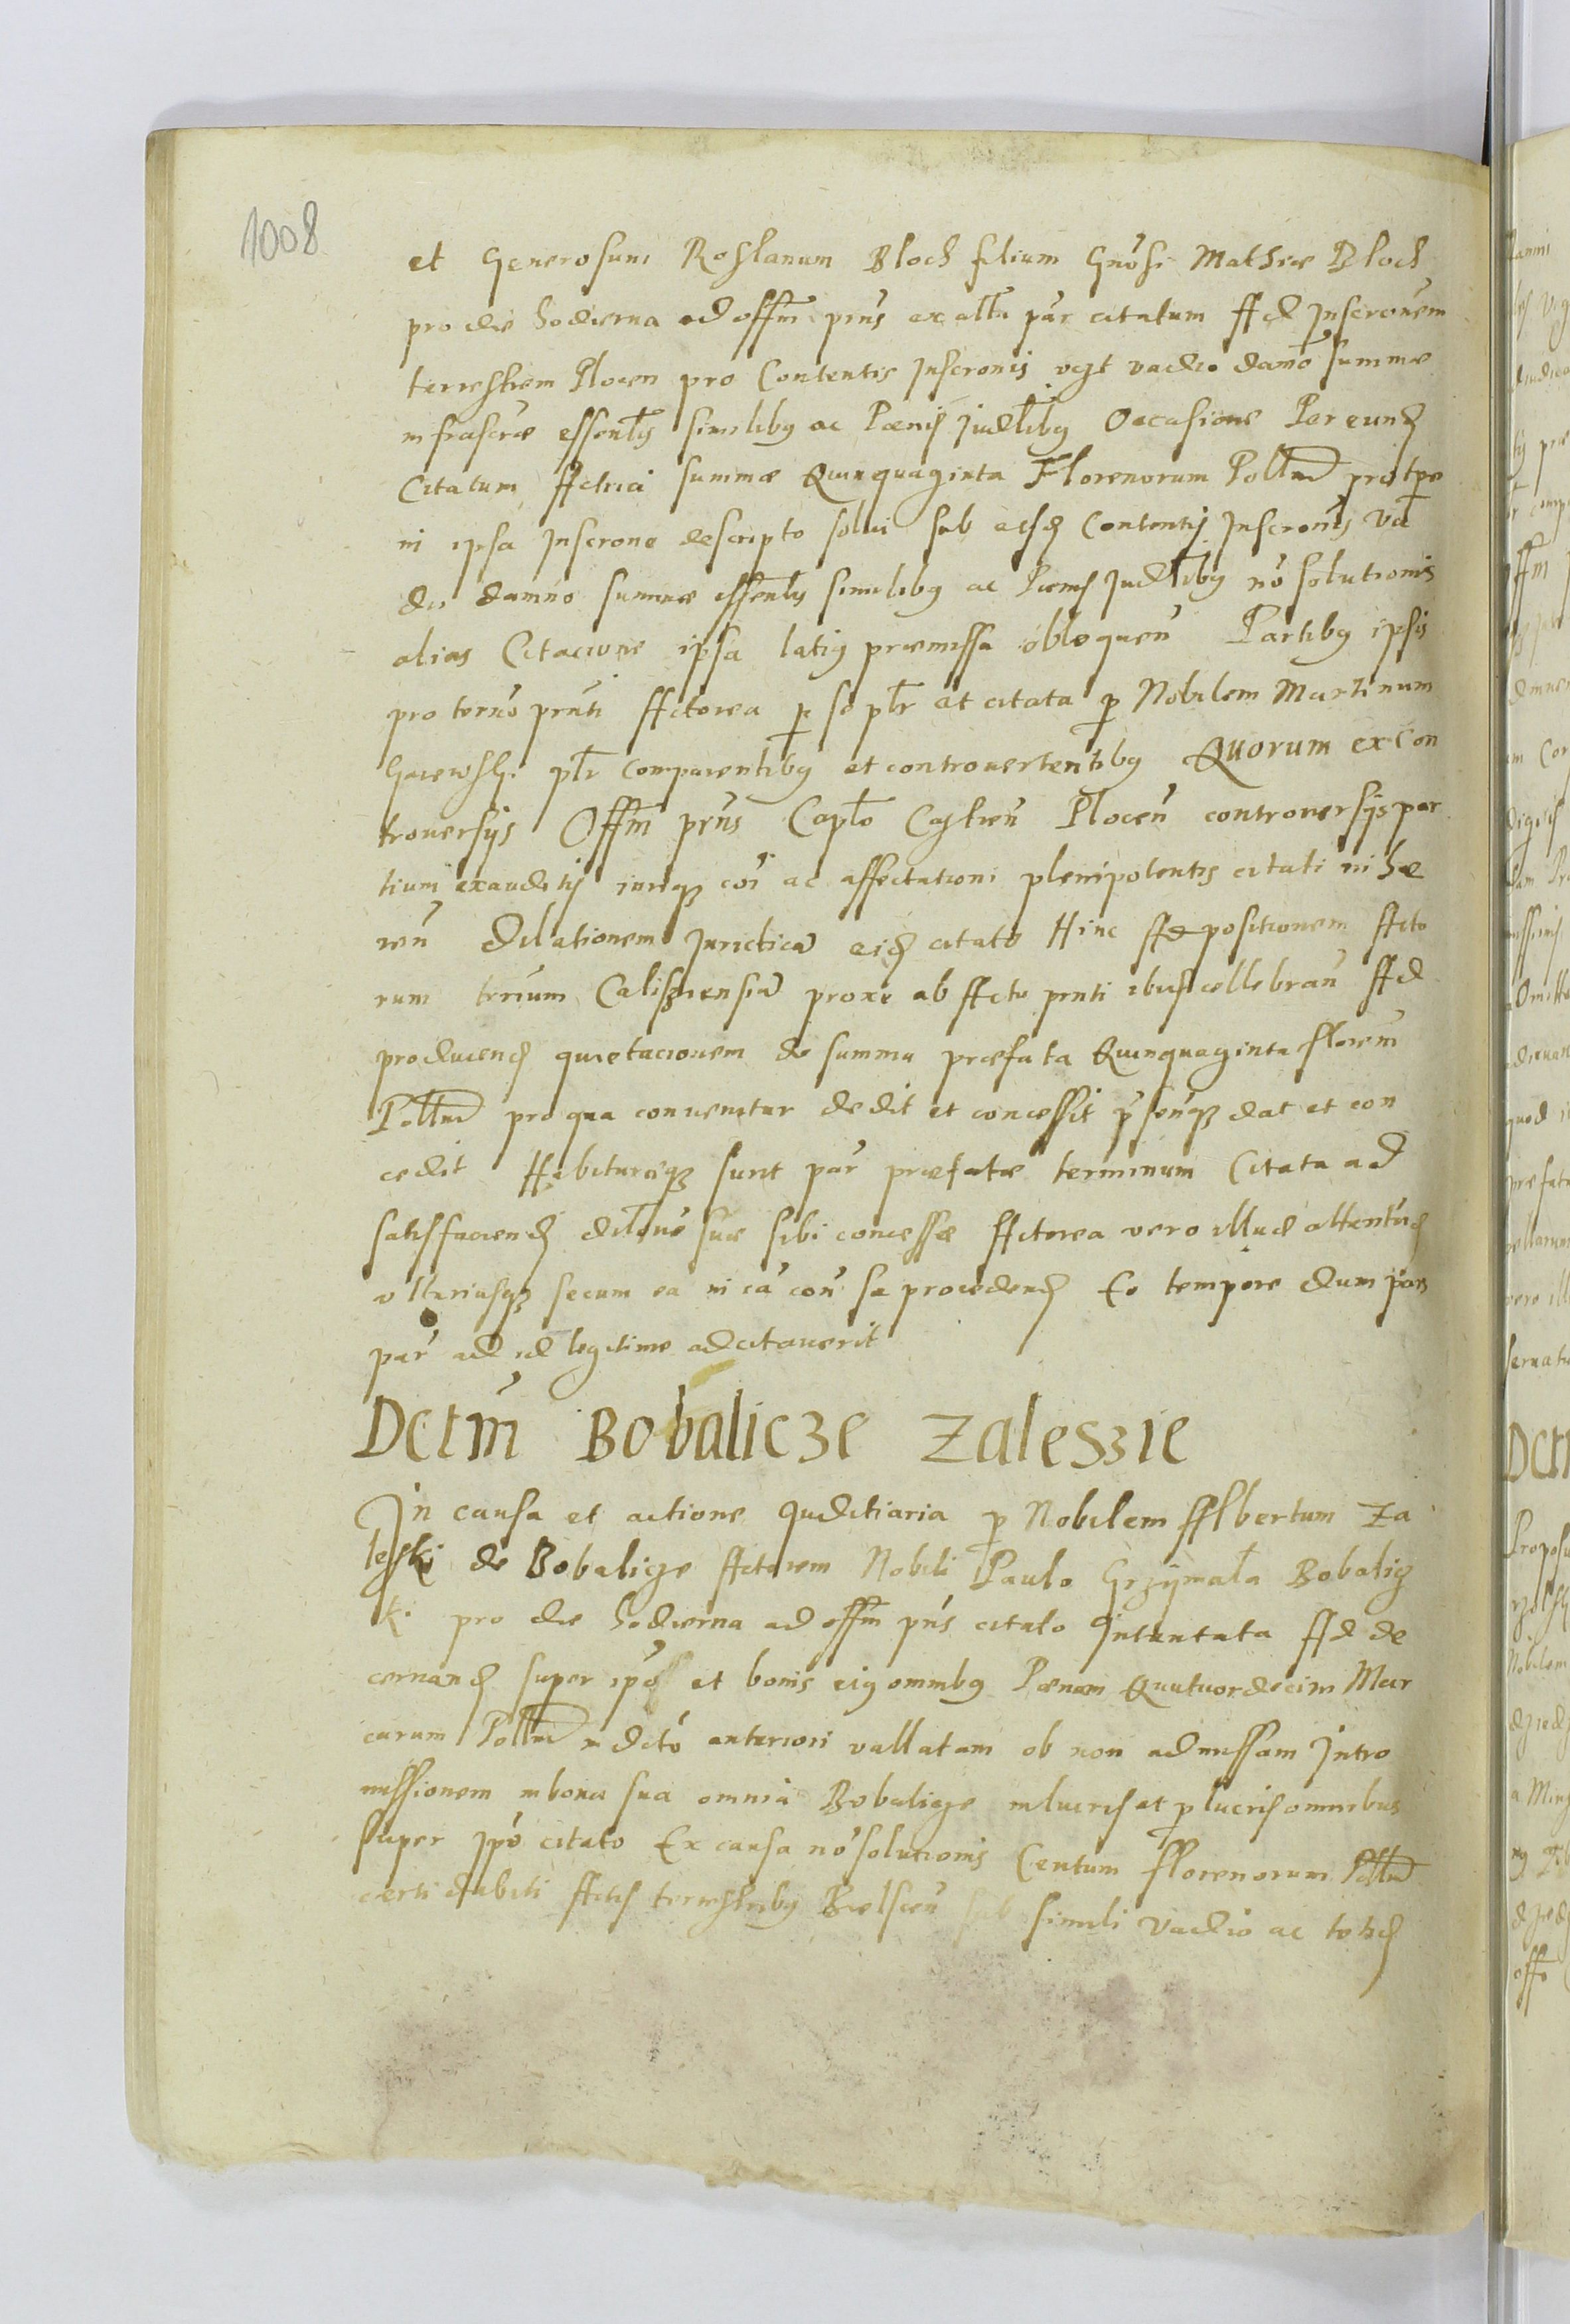 1008
et Generosum Roslanum Bloch filium Gnosi Mathiae Bloch
pro die hodierna ad offm prns ex altra par citatum Ad Inscronem
terrestrem Plocen pro Contentis Inscronis vgt vadio damo summae
infrascrae essentlis similibg ac Poenis Judlibg Occasione Per eund
Citatum Actrici summae Quinquaginta Florenorum Pollm pro tpe
in ipsa Inscrone descripto solui sub eisd Contentis Inscronis Va
dii damno summae essentlis similibg ac Poenis Judlibg no solutionis
alias Citacione ipsa latig praemissa obloquen Partibg ipsis
pro termo prnti Actorea p se plr et citata p Nobilem Martinum
plr comparentibg et controuertentibg Quorum ex con
trouersijs Offm prns Caplo Castren Plocen controuersijs par
tium exauditis iurigz coi ac affectationi plenipotentis citati in hae
ren Dilationem Juridica eid citato Hinc Ad positionem Acto
rum trrium proxe ab Actu prnti ibid cellebran Ad
producend quietacionem de summa praefata Quinquaginta floren
Pollm pro qua conuenitur dedit et concessit p senqz dat et con
cedit Habituraeqz sunt par praefatae terminum Citata ad
satisfaciend dilone suae sibi concessae Actorea vero illud attentand
vlteriusqz secum ea in ca con sa procedend Eo tempore dum pars
par ad id legitime adcitauerit
Dctm Bobalicze Zaleszie
In causa et actione Juditiaria p Nobilem Albertum Za
leski de Bobalicze Actorem Nobili Paulo Grzymala Bobalig
k. pro die hodierna ad offm pns citato Intentata Ad de
cernand super ipo et bonis eig omnibg Poenam Quatuordecim Mar
carum Pollm in dcto anteriori vallatam ob non admissam Intro
missionem in bona sua omnia Bobalicze in lucris et p lucris omnibus
super ipo citato Ex causa no solutionis Centum florenorum Pollm
certi debiti Actis terrestribg Bielscen sub simili vadio ac totid